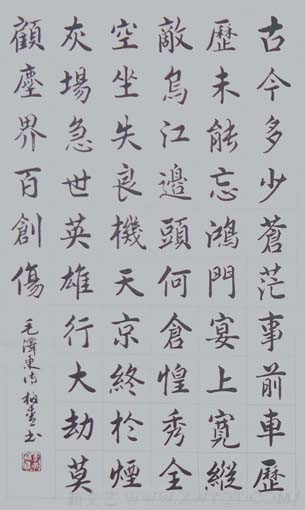 古今多少蒼茫事前車歷
歷未能忘鴻門宴上寬縱
敵烏江邊頭何倉惶秀全
空坐失良機天京終於煙
灰場急世英雄行大劫莫
顧塵界百創傷
毛澤東詩